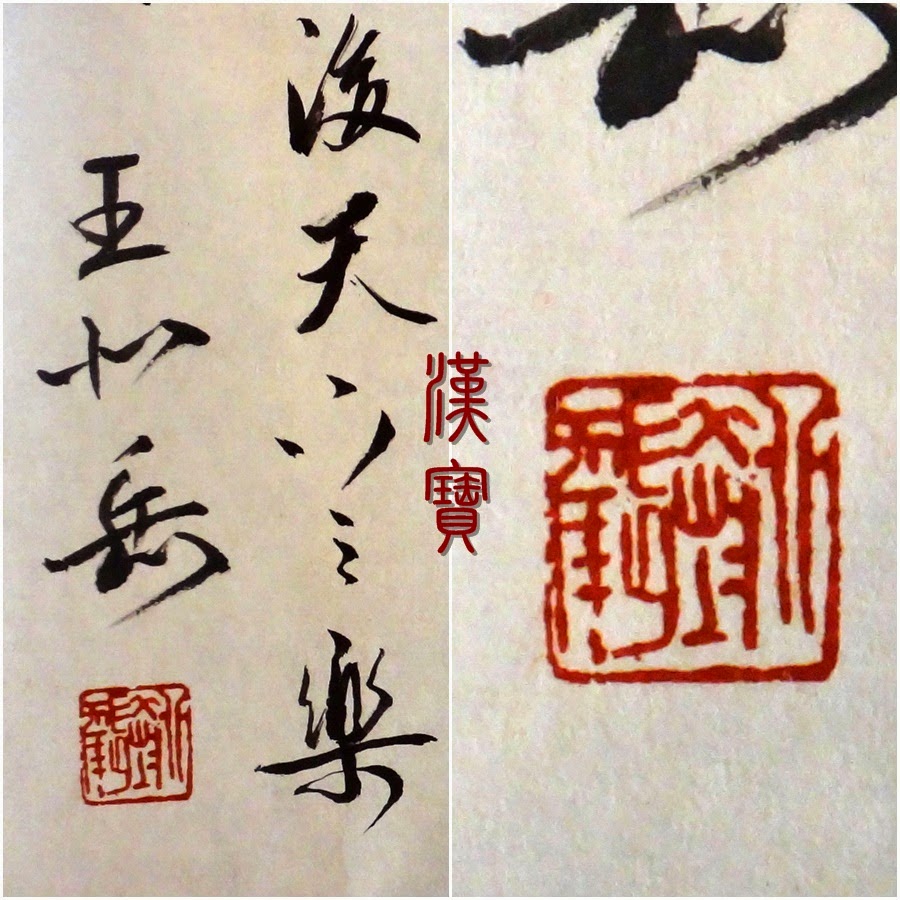 後天下之樂
王北岳
漢寶